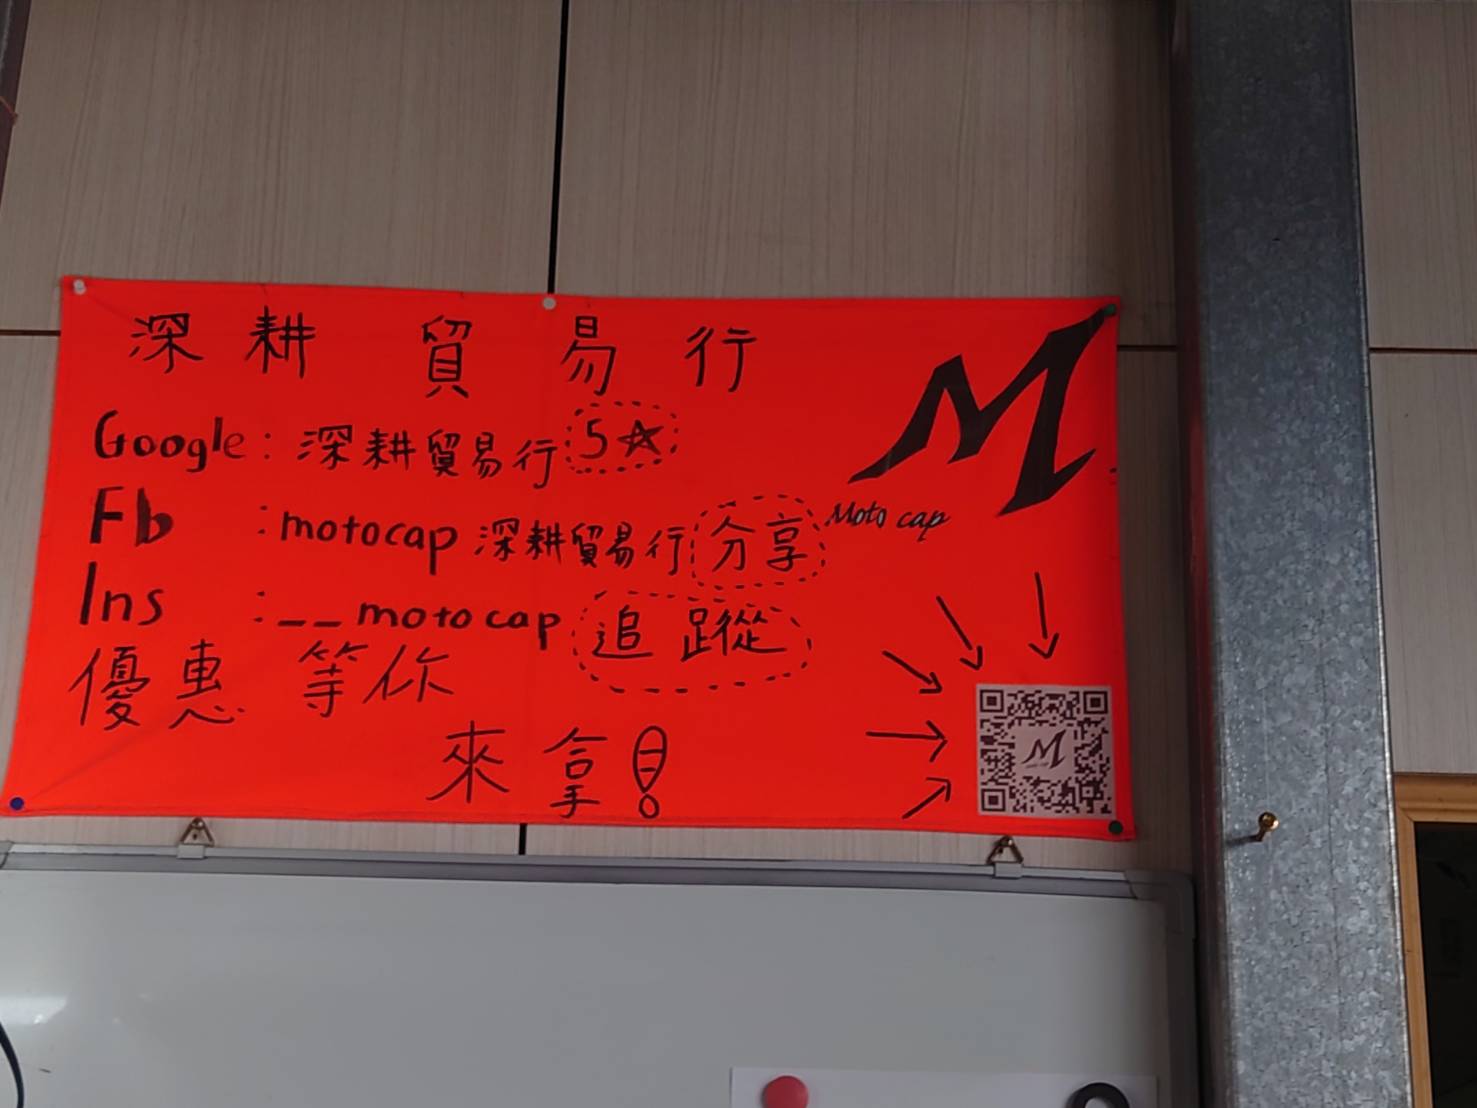 深耕貿易行
Google：深耕貿易行 5☆
Fb：motocap 深耕貿易行 分享
Moto cap
Ins：__motocap 追蹤
優惠等你
來拿！